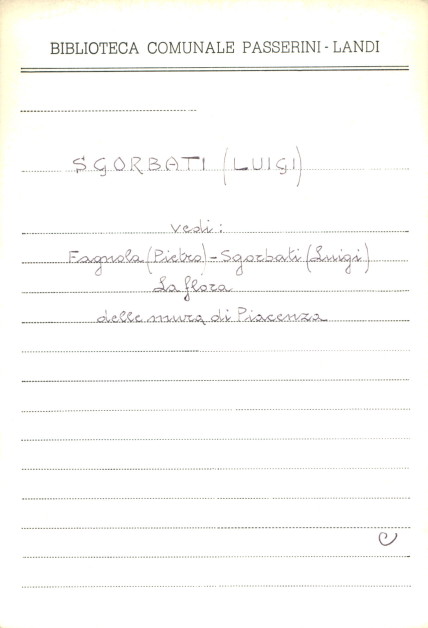 BIBLIOTECA COMUNALE PASSERINI - LANDI
SGORBATI (LUIGI)
vedi:
Fagnola (Pietro) - Sgorbati (Luigi)
La flora
delle mura di Piacenza